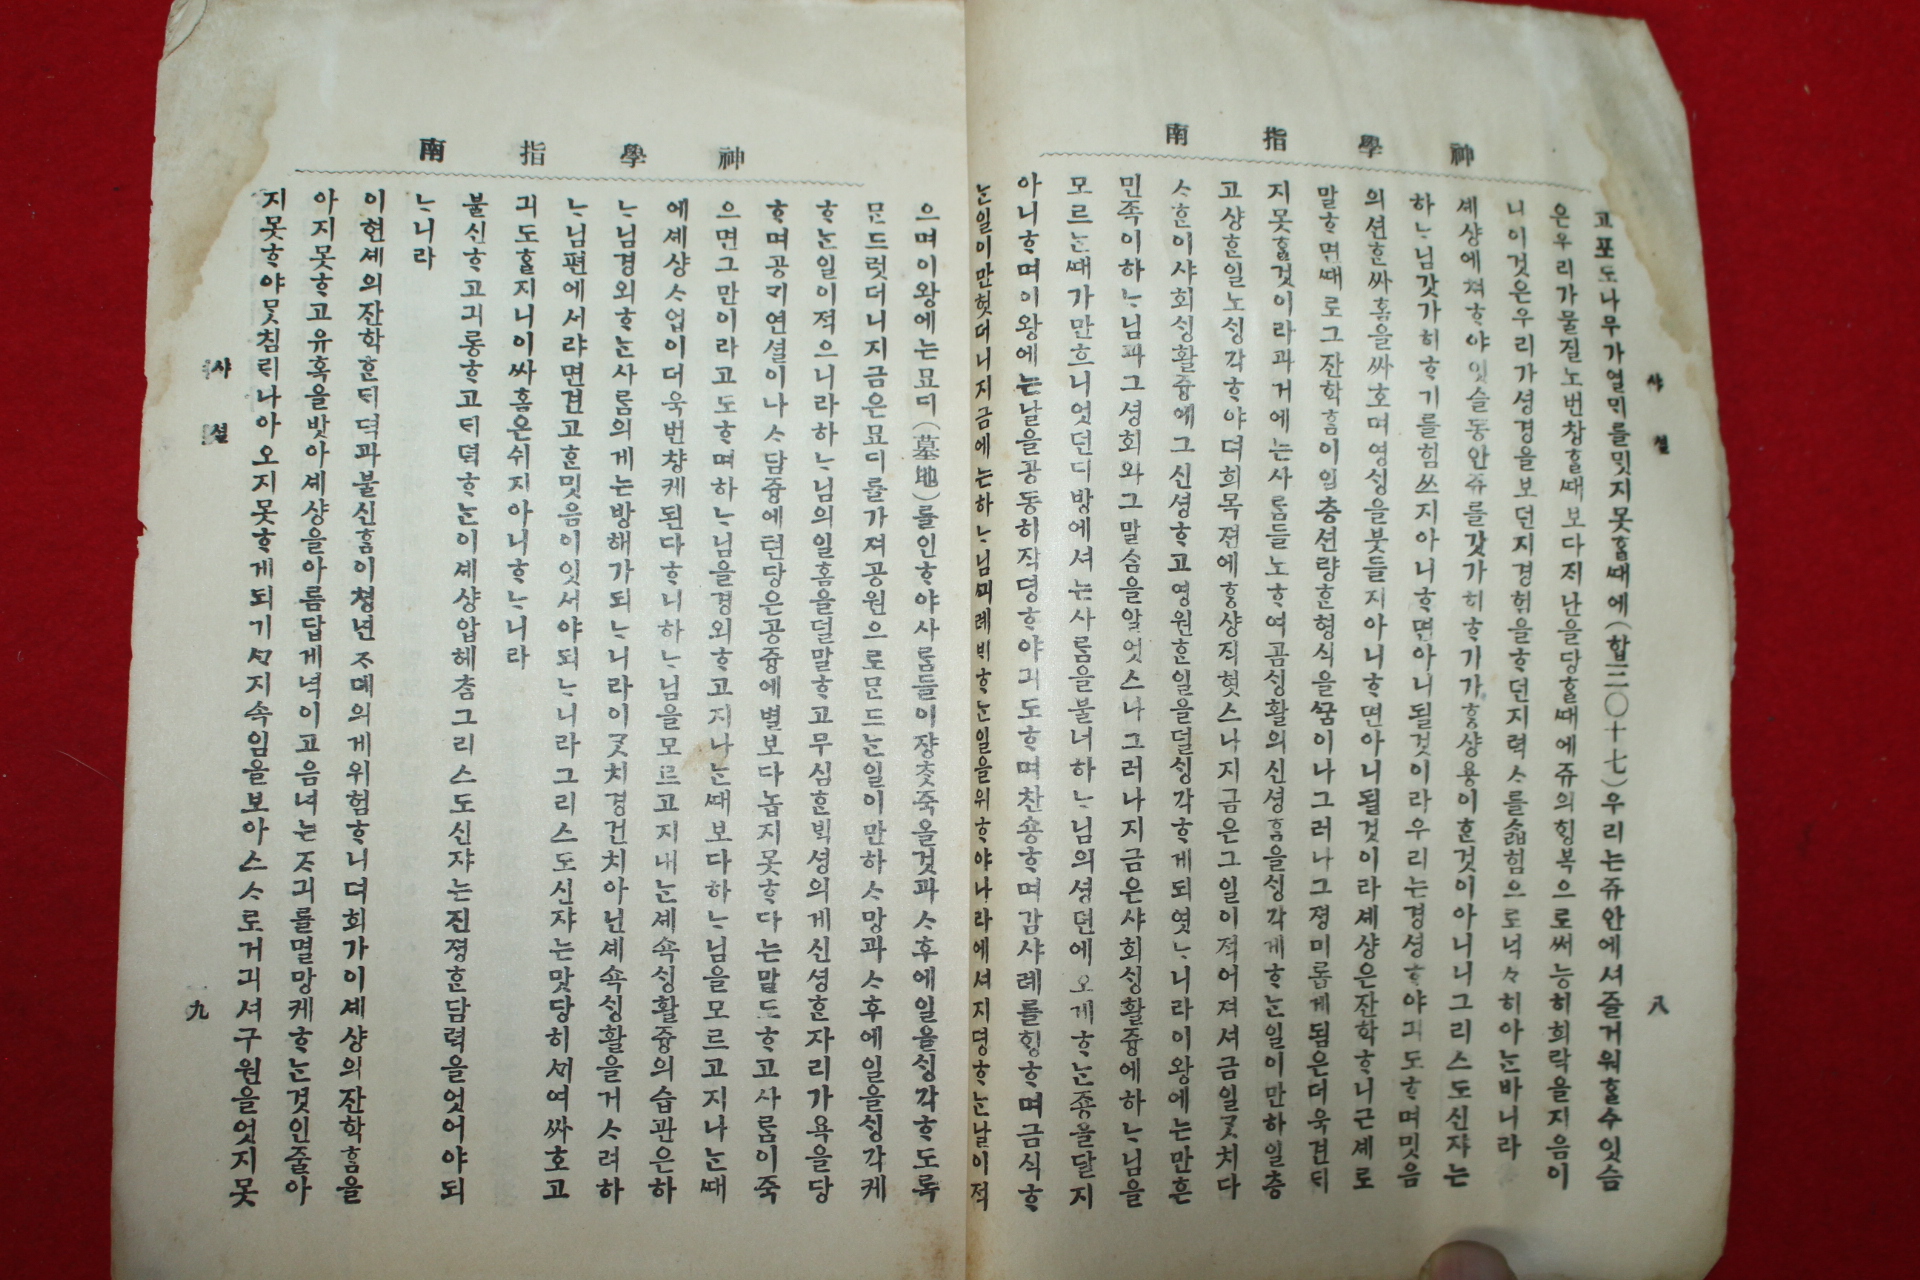 神學指南
샤셜
八
고포도나무가열ᄆᆡ를ᄆᆡᆺ지못ᄒᆞᆯᄯᅢ에(합三〇十七)우리는쥬안에셔즐거워ᄒᆞᆯ수잇슴
은우리가물질노번창ᄒᆞᆯᄯᅢ보다지난을당ᄒᆞᆯᄯᅢ에쥬의ᄒᆡᆼ복으로써능히희락을지음이
니이것은우리가셩경을보던지경험을ᄒᆞ던지력ᄉᆞ를ᄉᆞᆲ힘으로넉々히아ᄂᆞᆫ바니라
셰샹에쳐ᄒᆞ야잇슬동안쥬를갓가히ᄒᆞ기가ᄒᆞᆼ샹용이ᄒᆞᆫ것이아니니그리스도신쟈는
하ᄂᆞ님갓가히ᄒᆞ기를힘쓰지아니ᄒᆞ면아니될것이라우리는경셩ᄒᆞ야긔도ᄒᆞ며밋음
의션ᄒᆞᆫ싸홈을싸호며영ᄉᆡᆼ을붓들지아니ᄒᆞ면아니될것이라셰샹은잔학ᄒᆞ니근셰로
말ᄒᆞ면ᄯᅢ로그잔학ᄒᆞᆷ이일층션량ᄒᆞᆫ형식을ᄭᅮᆷ이나그러나그졍미롭게됨은더욱견ᄃᆡ
지못ᄒᆞᆯ것이라과거에는사ᄅᆞᆷ들노ᄒᆞ여곰ᄉᆡᆼ활의신셩ᄒᆞᆷ을ᄉᆡᆼ각게ᄒᆞᄂᆞᆫ일이만하일층
고샹ᄒᆞᆫ일노ᄉᆡᆼ각ᄒᆞ야뎌희목젼에ᄒᆞᆼ샹직혓스나지금은그일이적어져셔금일ᄀᆞᆺ치다
ᄉᆞᄒᆞᆫ이샤회ᄉᆡᆼ활즁에그신셩ᄒᆞ고영원ᄒᆞᆫ일을덜ᄉᆡᆼ각ᄒᆞ게되엿ᄂᆞ니라이왕에는만흔
민족이하ᄂᆞ님과그셩회와그말ᄉᆞᆷ을알엇스나그러나지금은샤회ᄉᆡᆼ활즁에하ᄂᆞ님을
모르ᄂᆞᆫᄯᅢ가만흐니엇던디방에셔는사ᄅᆞᆷ을불너하ᄂᆞ님의셩뎐에오게ᄒᆞᄂᆞᆫ죵을달지
아니ᄒᆞ며이왕에는날을공동히작뎡ᄒᆞ야긔도ᄒᆞ며찬숑ᄒᆞ며감샤례를ᄒᆡᆼᄒᆞ며금식ᄒᆞ
ᄂᆞᆫ일이만헛더니지금에는하ᄂᆞ님ᄭᅴ례ᄇᆡᄒᆞᄂᆞᆫ일을위ᄒᆞ야나라에셔지뎡ᄒᆞᄂᆞᆫ날이적
神學指南
으며이왕에는묘디(墓地)를인ᄒᆞ야사ᄅᆞᆷ들이쟝ᄎᆞᆺ죽을것과ᄉᆞ후에일을ᄉᆡᆼ각ᄒᆞ도록
ᄆᆞᆫ드럿더니지금은묘디를가져공원으로ᄆᆞᆫ드ᄂᆞᆫ일이만하ᄉᆞ망과ᄉᆞ후에일을ᄉᆡᆼ각케
ᄒᆞᄂᆞᆫ일이적으니라하ᄂᆞ님의일홈을덜말ᄒᆞ고무심ᄒᆞᆫᄇᆡᆨ셩의게신셩ᄒᆞᆫ자리가욕을당
ᄒᆞ며공긔연셜이나ᄉᆞ담즁에텬당은공즁에별보다놉지못ᄒᆞ다는말도ᄒᆞ고사ᄅᆞᆷ이죽
으면그만이라고도ᄒᆞ며하ᄂᆞ님을경외ᄒᆞ고지나ᄂᆞᆫᄯᅢ보다하ᄂᆞ님을모르고지나ᄂᆞᆫᄯᅢ
에셰샹ᄉᆞ업이더욱번챵케된다ᄒᆞ니하ᄂᆞ님을모르고지내ᄂᆞᆫ셰쇽ᄉᆡᆼ활즁의습관은하
ᄂᆞ님경외ᄒᆞᄂᆞᆫ사ᄅᆞᆷ의게는방해가되ᄂᆞ니라이ᄀᆞᆺ치경건치아닌셰쇽ᄉᆡᆼ활을거ᄉᆞ려하
ᄂᆞ님편에서랴면견고ᄒᆞᆫ밋음이잇서야되ᄂᆞ니라그리스도신쟈는맛당히ᄭᆡ여싸호고
긔도ᄒᆞᆯ지니이싸홈은쉬지아니ᄒᆞᄂᆞ니라
불신ᄒᆞ고긔롱ᄒᆞ고ᄃᆡ뎍ᄒᆞᄂᆞᆫ이셰샹압헤ᄎᆞᆷ그리스도신쟈는진졍ᄒᆞᆫ담력을엇어야되
ᄂᆞ니라
이현셰의잔학ᄒᆞᆫᄃᆡ뎍과불신ᄒᆞᆷ이쳥년ᄌᆞ뎨의게위험ᄒᆞ니뎌희가이셰샹의잔학ᄒᆞᆷ을
아지못ᄒᆞ고유혹을밧아셰샹을아ᄅᆞᆷ답게녁이고음녀는ᄌᆞ긔를멸망케ᄒᆞᄂᆞᆫ것인줄아
지못ᄒᆞ야ᄆᆞᆺ침ᄅᆡ나아오지못ᄒᆞ게되기ᄭᆞ지속임을보아스ᄉᆞ로거긔셔구원을엇지못
샤셜
九